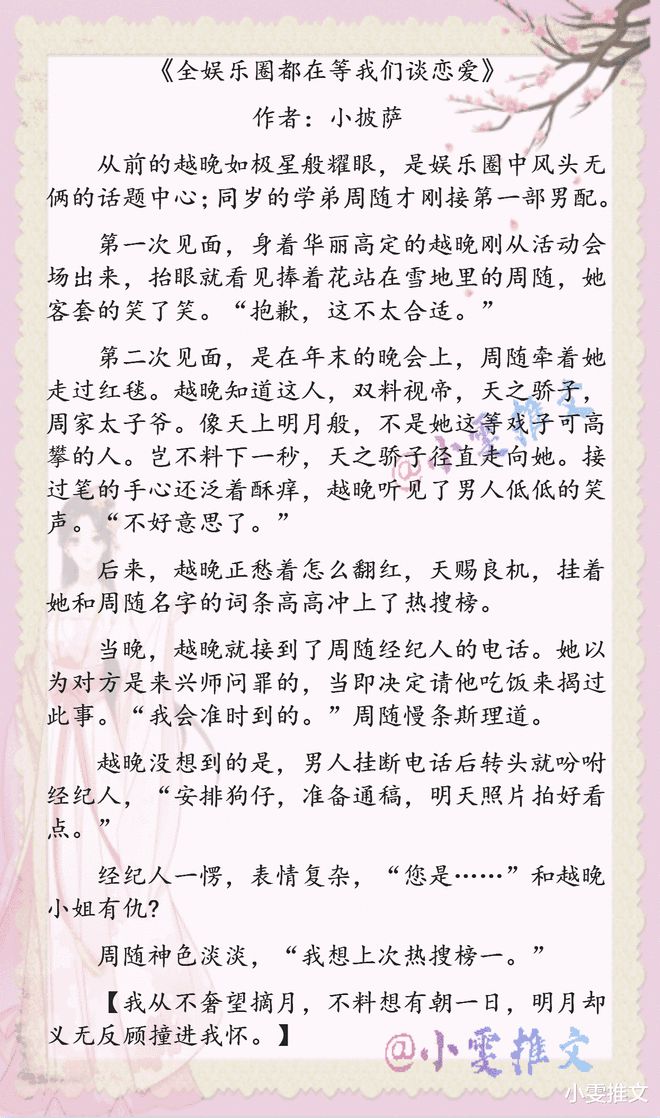 《全娱乐圈都在等我们谈恋爱》
作者：小披萨
从前的越晚如极星般耀眼，是娱乐圈中风头无
俩的话题中心；同岁的学弟周随才刚接第一部男配。
第一次见面，身着华丽高定的越晚刚从活动会
场出来，抬眼就看见捧着花站在雪地里的周随，她
客套的笑了笑。“抱歉，这不太合适。”
第二次见面，是在年末的晚会上，周随牵着她
走过红毯。越晚知道这人，双料视帝，天之骄子，
周家太子爷。像天上明月般，不是她这等戏子可高
攀的人。岂不料下一秒，天之骄子径直走向她。接
过笔的手心还泛着酥痒，越晚听见了男人低低的笑
声。“不好意思了。”
后来，越晚正愁着怎么翻红，天赐良机，挂着
她和周随名字的词条高高冲上了热搜榜。
当晚，越晚就接到了周随经纪人的电话。她以
为对方是来兴师问罪的，当即决定请他吃饭来揭过
此事。“我会准时到的。”周随慢条斯理道。
越晚没想到的是，男人挂断电话后转头就吩咐
经纪人，“安排狗仔，准备通稿，明天照片拍好看
点。”
经纪人一愣，表情复杂，“您是……”和越晚
小姐有仇?
周随神色淡淡，“我想上次热搜榜一。”
【我从不奢望摘月，不料想有朝一日，明月却
义无反顾撞进我怀。】
@小雯推文
@小雯推文
小雯推文